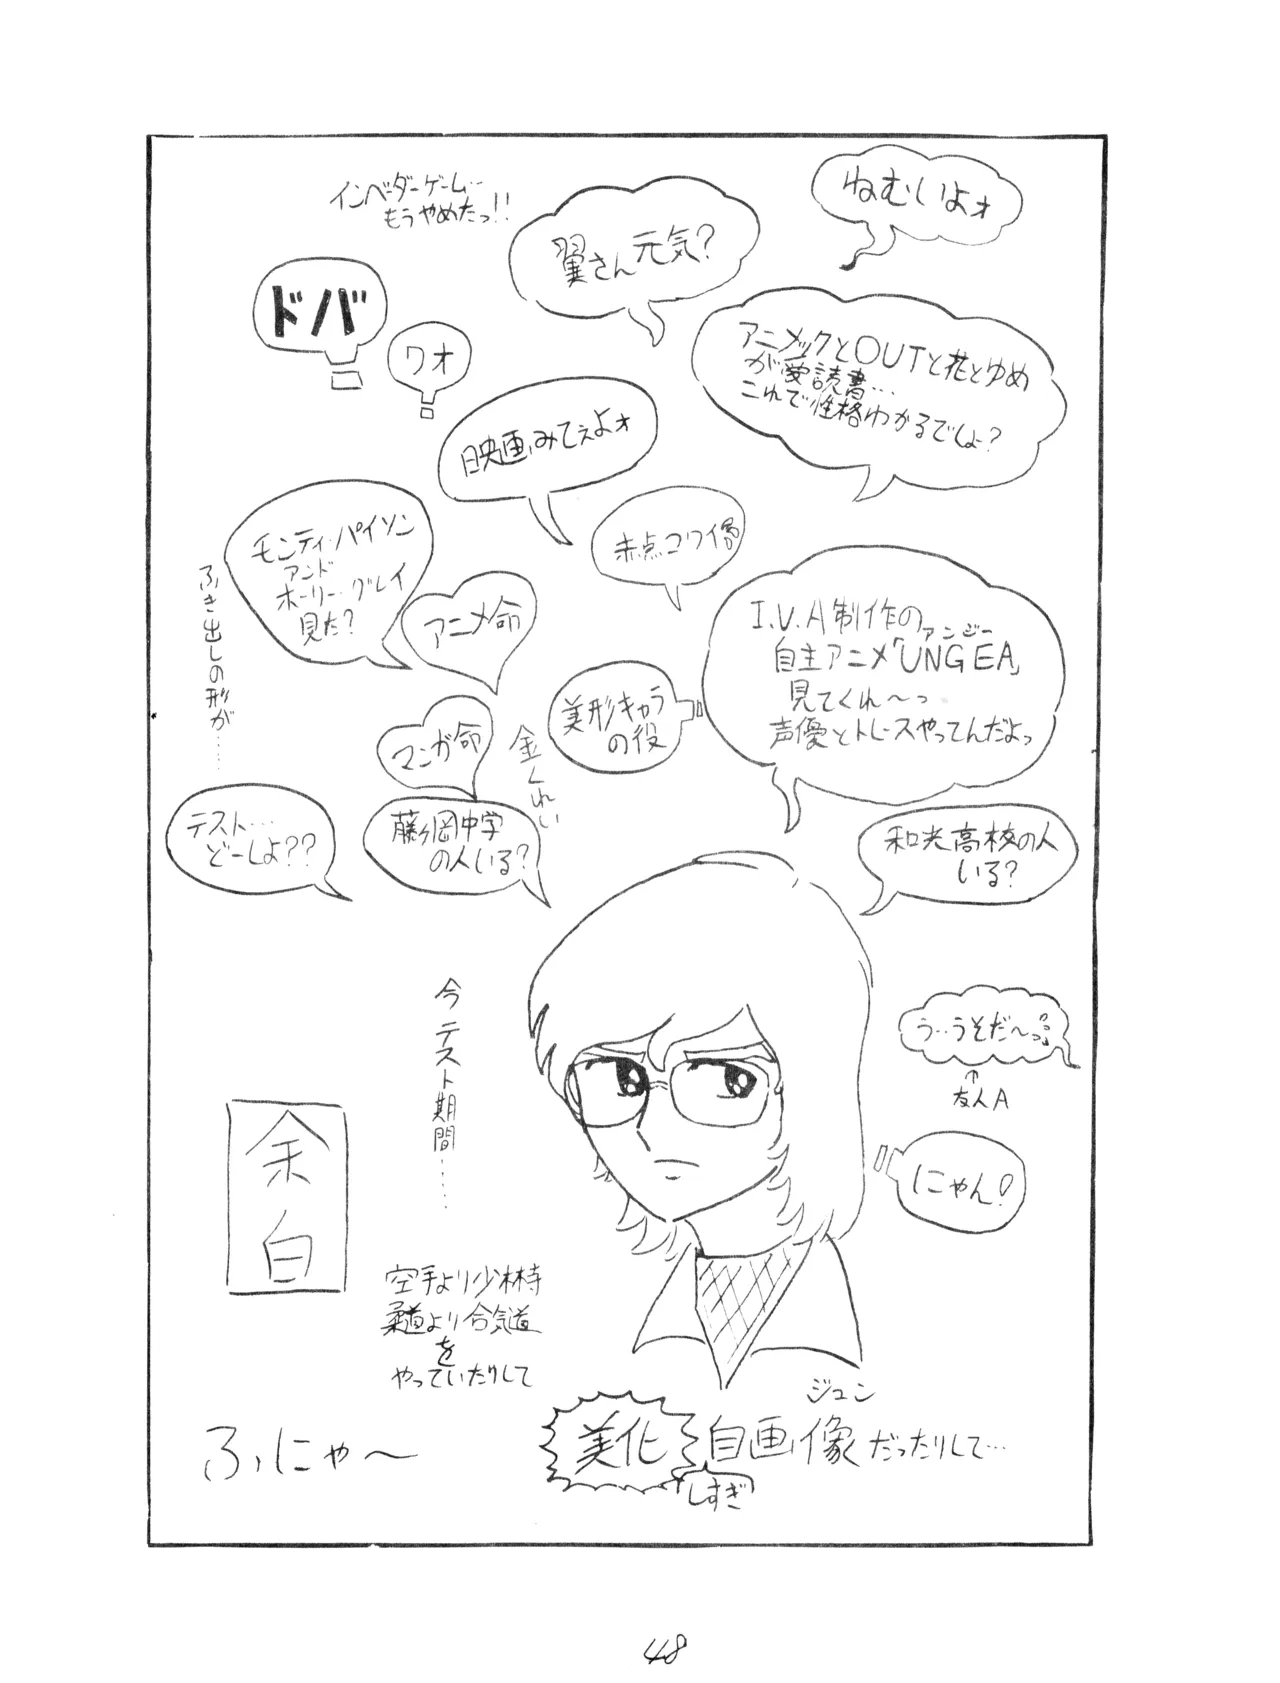 インベーダーゲーム…
もうやめたっ!!
ねむいよォ
翼さん元気?
ドバ
ワオ
アニメックとOUTと花とゆめ
が愛読書…
これで性格わかるでしょ?
映画みてぇよォ
モンティ・パイソン
アンド
ホーリー・グレイ
見た?
赤点コワイ
ふき出しの形が……
アニメ命
I.V.A制作の
アンジー
自主アニメ「UNGEA」
見てくれ〜っ
声優とトレースやってんだよっ
美形キャラ
の役
マンガ命
金くれい
テスト…
どーしよ??
藤ヶ岡中学
の人いる?
和光高校の人
いる?
今テスト期間……
う…うそだ〜っ
↑
友人A
にゃん!
余白
空手より少林寺
柔道より合気道
を
やっていたりして
ジュン
美化自画像だったりして…
しすぎ
ふにゃ〜
48